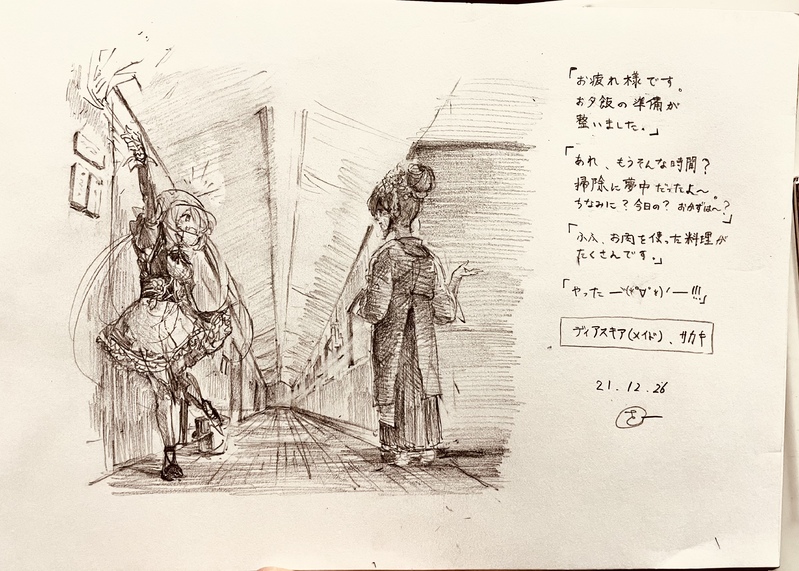 「お疲れ様です。
お夕飯の準備が
整いました。」
「あれ、もうそんな時間？
掃除に夢中だったよ〜。
ちなみに？今日の？おかずは〜？」
「ふふ、お肉を使った料理が
たくさんです。」
「やったー
ー!!!」
ディアスキア(メイド)、サカキ
21.12.26